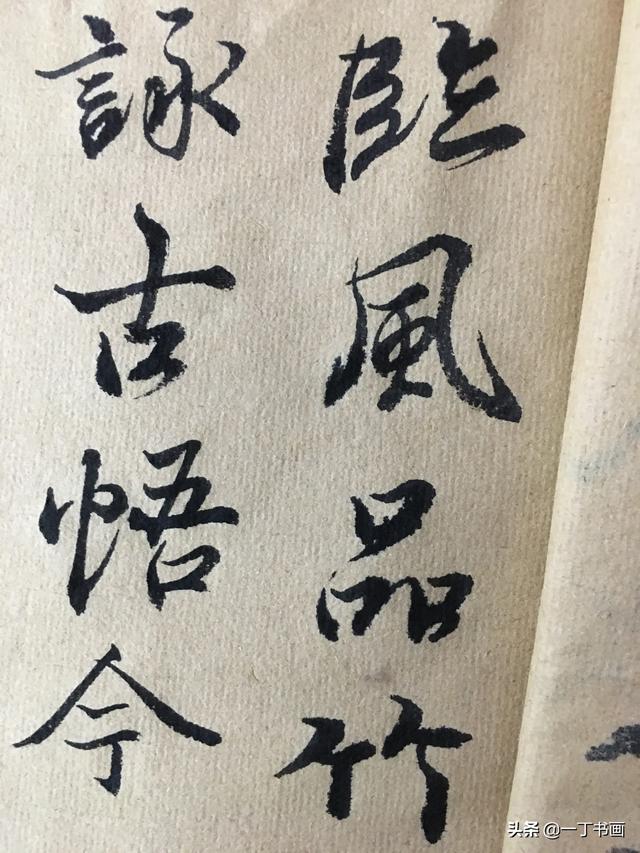 臨風品竹
詠古悟今
头条 @一丁书画